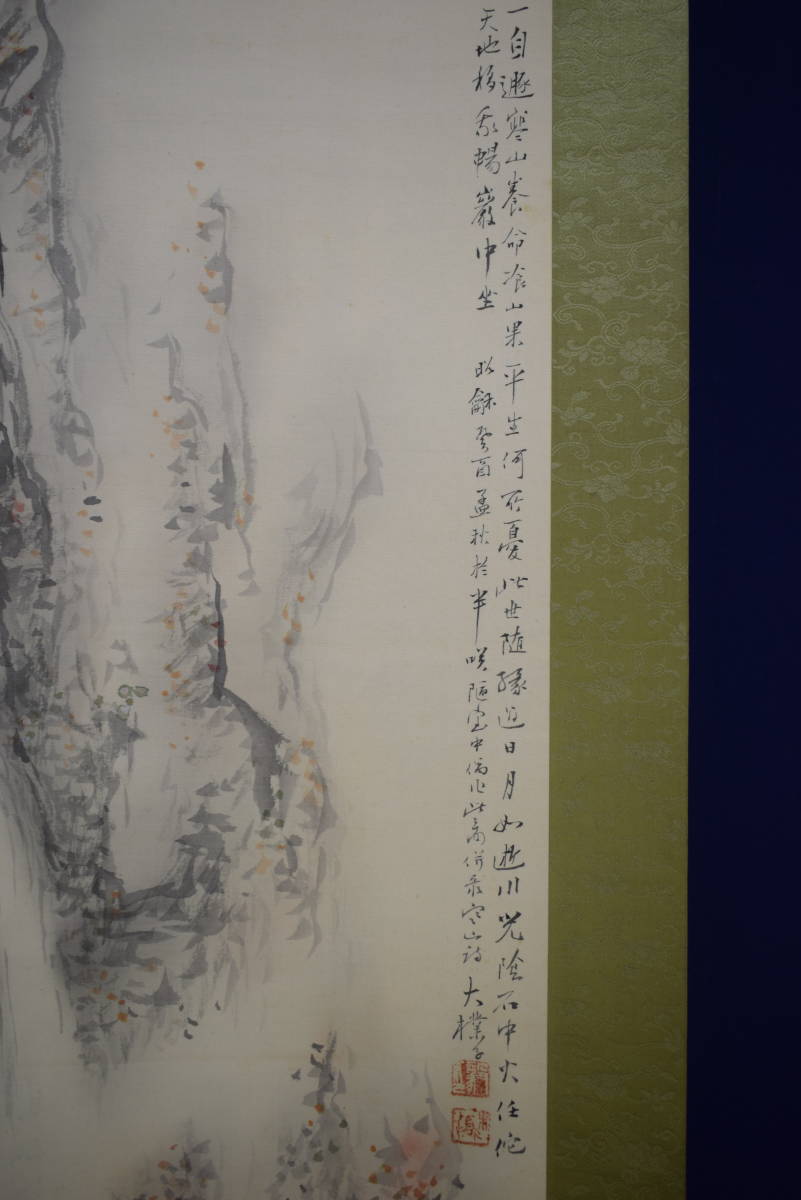 一自遯寒山養命飡山果平生何所憂此世随縁過日月如逝川光陰石中火任佗
天地移我暢巖中坐　昭龢癸酉孟秋於半咲陋室中偶作此圖併录寒山詩　大樸子